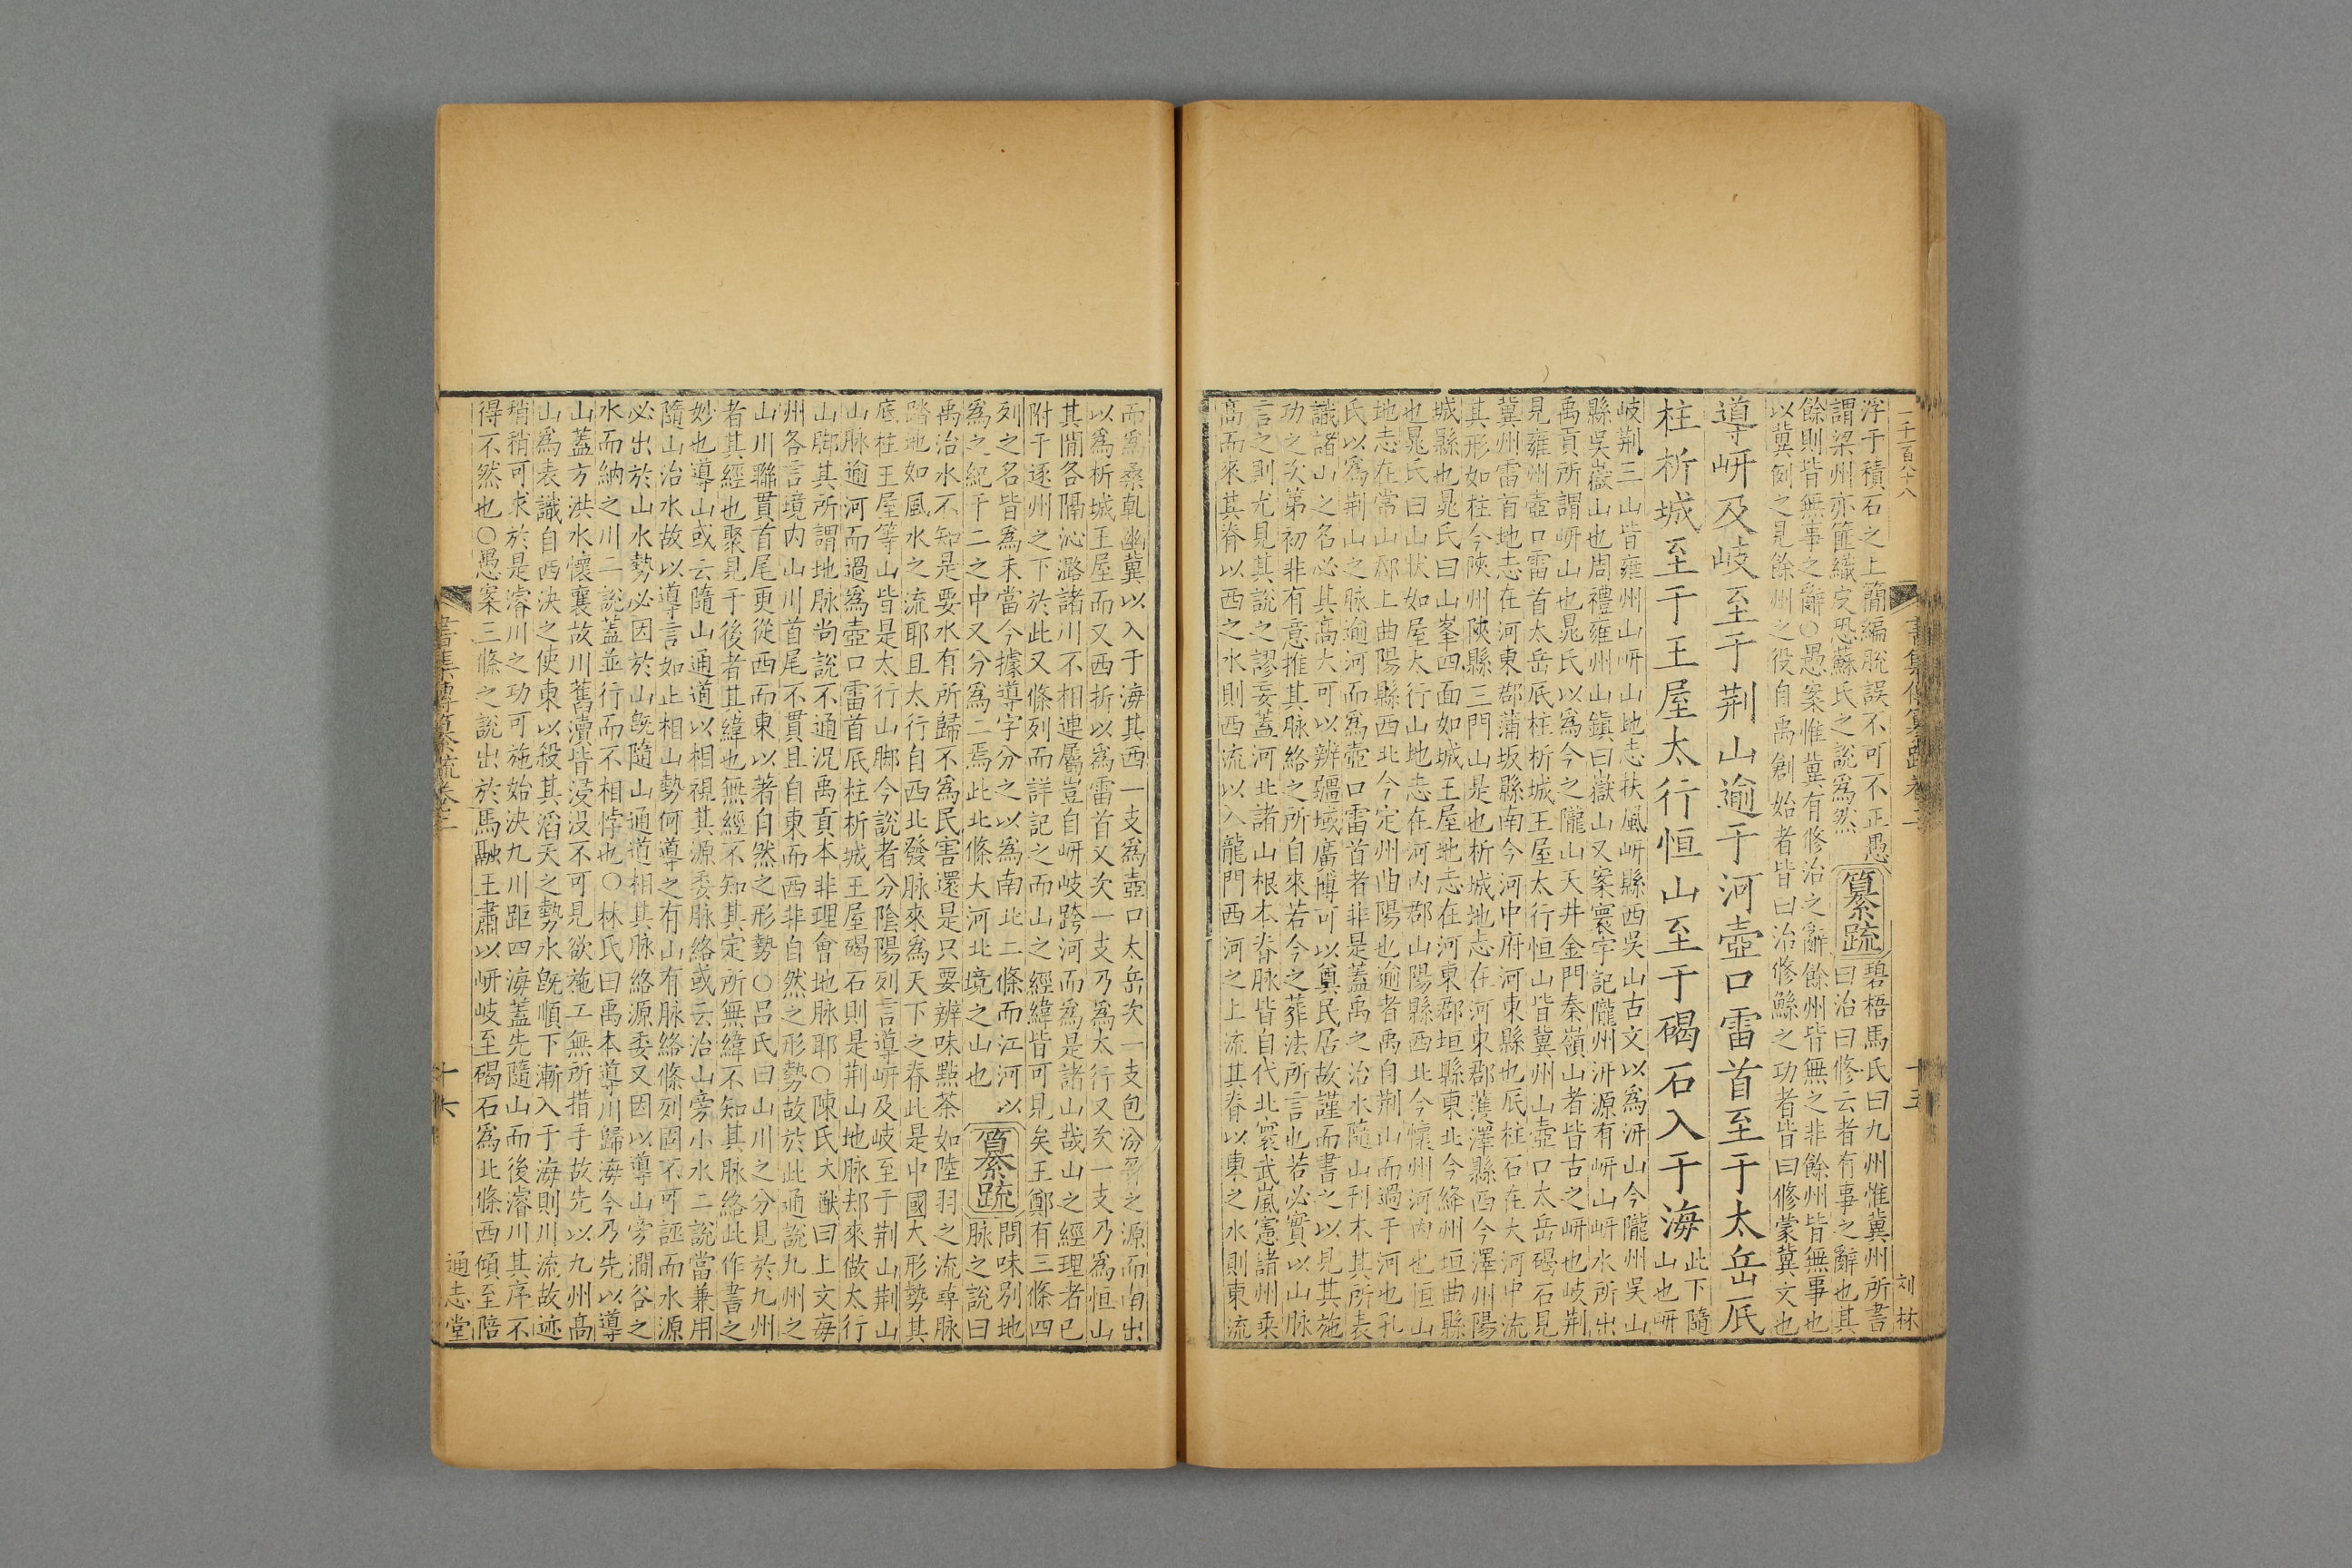 二千百八十八
浮于積石之上簡編脫誤不可不正愚
謂梁州亦篚織皮恐蘇氏之說爲然
纂疏
碧梧馬氏曰九州惟冀州所書
曰治曰修云者有事之辭也其
餘則皆無事之辭○愚案惟冀有修治之辭餘州皆無之非餘州皆無事也
以冀例之見餘州之役自禹創始者皆曰治修鯀之功者皆曰修蒙冀文也
導岍及岐至于荆山逾于河壺口雷首至于太岳厎
柱析城至于王屋太行恒山至于碣石入于海
此下隨
山也岍
岐荆三山皆雍州山岍山地志扶風岍縣西吳山古文以爲汧山今隴州吳山
縣吳嶽山也周禮雍州山鎭曰嶽山又案寰宇記隴州汧源有岍山岍水所出
禹貢所謂岍山也晁氏以爲今之隴山天井金門秦嶺山者皆古之岍也岐荆
見雍州壺口雷首太岳厎柱析城王屋太行恒山皆冀州山壺口太岳碣石見
冀州雷首地志在河東郡蒲坂縣南今河中府河東縣也厎柱石在大河中流
其形如柱今陜州陜縣三門山是也析城地志在河東郡濩澤縣西今澤州陽
城縣也晁氏曰山峯四面如城王屋地志在河東郡垣縣東北今絳州垣曲縣
也晁氏曰山狀如屋太行山地志在河內郡山陽縣西北今懷州河內也恒山
地志在常山郡上曲陽縣西北今定州曲陽也逾者禹自荆山而過于河也孔
氏以爲荆山之脉逾河而爲壺口雷首者非是蓋禹之治水隨山刊木其所表
識諸山之名必其高大可以辨疆域廣博可以奠民居故謹而書之以見其施
功之次第初非有意推其脉絡之所自來若今之葬法所言也若必實以山脉
言之則尤見其說之謬妄蓋河北諸山根本脊脉皆自代北寰武嵐憲諸州乘
高而來其脊以西之水則西流以入龍門西河之上流其脊以東之水則東流
書集傳纂疏卷二
十五
刘林
而爲桑乾幽冀以入于海其西一支爲壺口太岳次一支包汾晉之源而南出
以爲析城王屋而又西折以爲雷首又次一支乃爲太行又次一支乃爲恒山
其閒各隔沁潞諸川不相連屬豈自岍岐跨河而爲是諸山哉山之經理者已
附于逐州之下於此又條列而詳記之而山之經緯皆可見矣王鄭有三條四
列之名皆爲未當今據導字分之以爲南北二條而江河以
爲之紀于二之中又分爲二焉此北條大河北境之山也
纂疏
問味別地
脉之說曰
禹治水不知是要水有所歸不爲民害還是只要辨味點茶如陸羽之流尋脉
踏地如風水之流耶且太行自西北發脉來爲天下之脊此是中國大形勢其
底柱王屋等山皆是太行山脚今說者分陰陽列言導岍及岐至于荆山荆山
山脉逾河而過爲壺口雷首厎柱析城王屋碣石則是荆山地脉却來做太行
山脚其所謂地脉尚說不通况禹貢本非理會地脉耶○陳氏大猷曰上文每
州各言境内山川首尾不貫且自東而西非自然之形勢故於此通說九州之
山川聯貫首尾更從西而東以著自然之形勢○呂氏曰山川之分見於九州
者其經也聚見于後者其緯也無經不知其定所無緯不知其脉絡此作書之
妙也導山或云隨山通道以相視其源委脉絡或云治山旁小水二說當兼用
隨山治水故以導言如止相山勢何導之有山有脉絡條列固不可誣而水源
必出於山水勢必因於山旣隨山通道相其脉絡源委又因以導山旁澗谷之
水而納之川二說蓋並行而不相悖也○林氏曰禹本導川歸海今乃先以導
山蓋方洪水懷襄故川舊瀆皆浸沒不可見欲施工無所措手故先以九州高
山爲表識自西決之使東以殺其滔天之勢水旣順下漸入于海則川流故迹
稍稍可求於是濬川之功可施始決九川距四海蓋先隨山而後濬川其序不
得不然也○愚案三條之說出於馬融王肅以岍岐至碣石爲北條西傾至陪
書集傳纂疏卷二
十六
通志堂